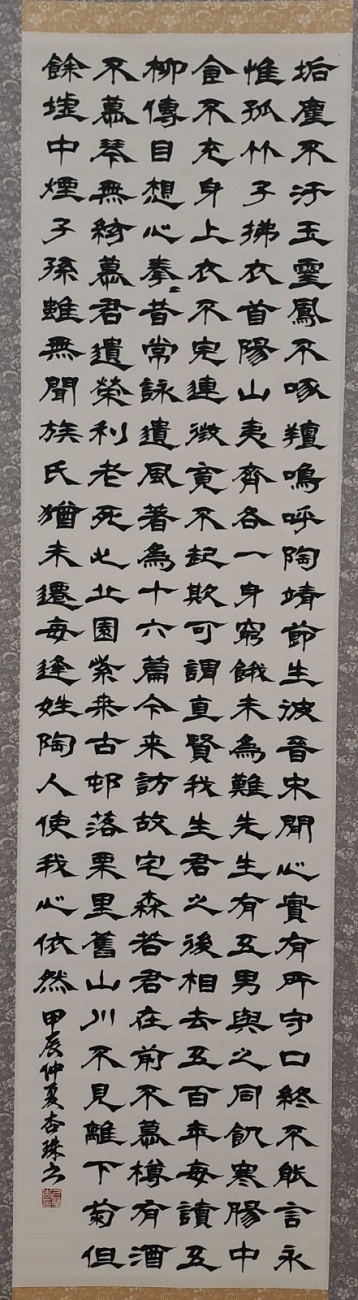 垢塵不汙玉靈鳳不啄羶嗚呼陶靖節生彼晉宋間心實有所守口終不能言永
惟孤竹子拂衣首陽山夷齊各一身窮餓未為難先生有五男與之同飢寒腸中
食不充身上衣不完連徵竟不起欺可謂真賢我生君之後相去五百年每讀五
柳傳目想心拳〻昔常詠遺風著為十六篇今来訪故宅森若君在前不慕樽有酒
不慕琴無絃慕君遺榮利老死此丘園柴桒古邨落栗里舊山川不見離下菊但
餘墟中煙子孫雖無聞族氏猶未遷每逢姓陶人使我心依然甲辰仲夏杏珠书